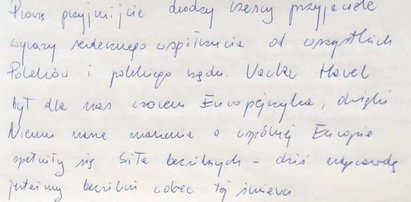 Proszę przyjmijcie drodzy czescy przyjaciele
wyrazy serdecznego współczucia od wszystkich
Polaków i polskiego rządu. Vaclav Havel
był dla nas wzorem Europejczyka, dzięki
Niemu nasze marzenia o wspólnej Europie
spełniły się. Siła bezsilnych – dziś naprawdę
jesteśmy bezsilni wobec tej śmierci.